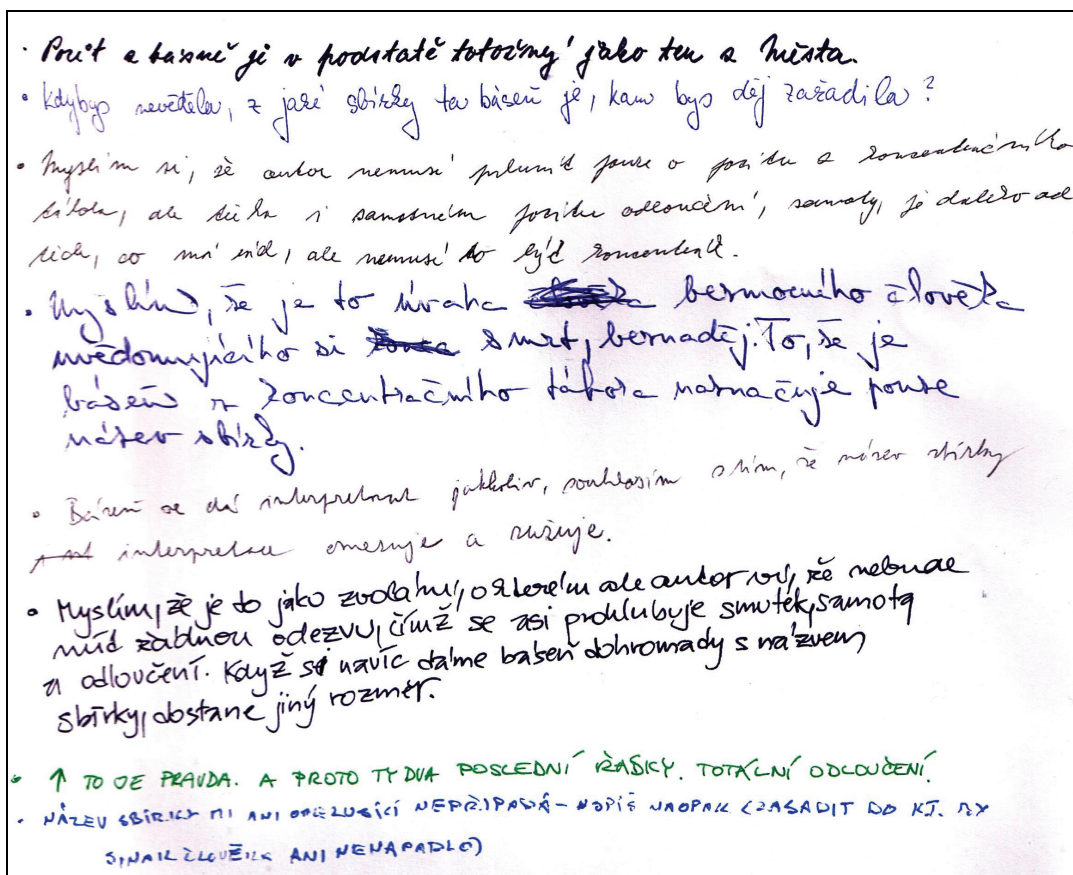 · Pocit z básně je v podstatě totožný jako ten z Místa.
· Kdybys nevěděla, z jaké sbírky ta báseň je, kam bys děj zařadila?
· Myslím si, že autor nemusí mluvit pouze o pocitu z koncentračního
tábora, ale třeba i samotném pocitu odloučení, samoty, je daleko od
těch, co má rád, ale nemusí to být koncentrák.
· Myslím, že je to úvaha bezmocného člověka
uvědomujícího si smrt, beznaděj. To, že je
báseň z koncentračního tábora naznačuje pouze
název sbírky.
· Báseň se dá interpretovat jakkoliv, souhlasím s tím, že název sbírky
interpretace omezuje a zužuje.
· Myslím, že je to jako zvolání, o kterém ale autor ví, že nebude
mít žádnou odezvu, čímž se asi prohlubuje smutek, samota
a odloučení. Když si navíc dáme báseň dohromady s názvem
sbírky, dostane jiný rozměr.
· ↑ TO JE PRAVDA. A PROTO TY DVA POSLEDNÍ ŘÁDKY. TOTÁLNÍ ODLOUČENÍ.
· NÁZEV SBÍRKY MI ANI OMEZUJÍCÍ NEPŘIPADÁ – SPÍŠ NAOPAK (ZASADIT DO KT. BY
JINAK ČLOVĚKA ANI NENAPADLO)